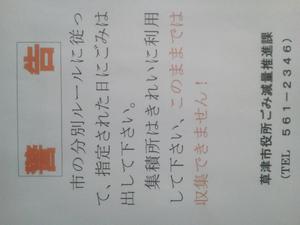 警告
市の分別ルールに従っ
て、指定された日にごみは
出して下さい。
集積所はきれいに利用
して下さい、このままでは
収集できません！
草津市役所ごみ減量推進課
(TEL 561-2346)